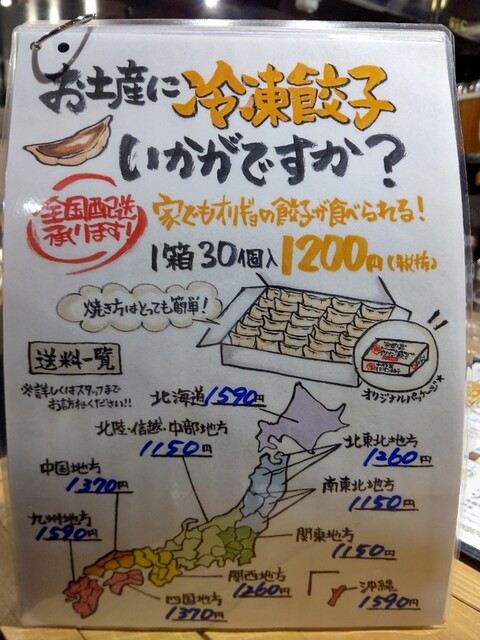 お土産に冷凍餃子
いかがですか?
全国配送
承ります!
家でもオリギョの餃子が食べられる!
1箱30個入1200円(税抜)
焼き方はとっても簡単!
オリジナルパッケージ★
送料一覧
※詳しくはスタッフまで
お訪ねください!!
北海道 1590円
北陸・信越・中部地方
1150円
北東北地方
1260円
中国地方
1370円
南東北地方
1150円
九州地方
1590円
関東地方
1150円
関西地方
1260円
四国地方
1370円
沖縄
1590円